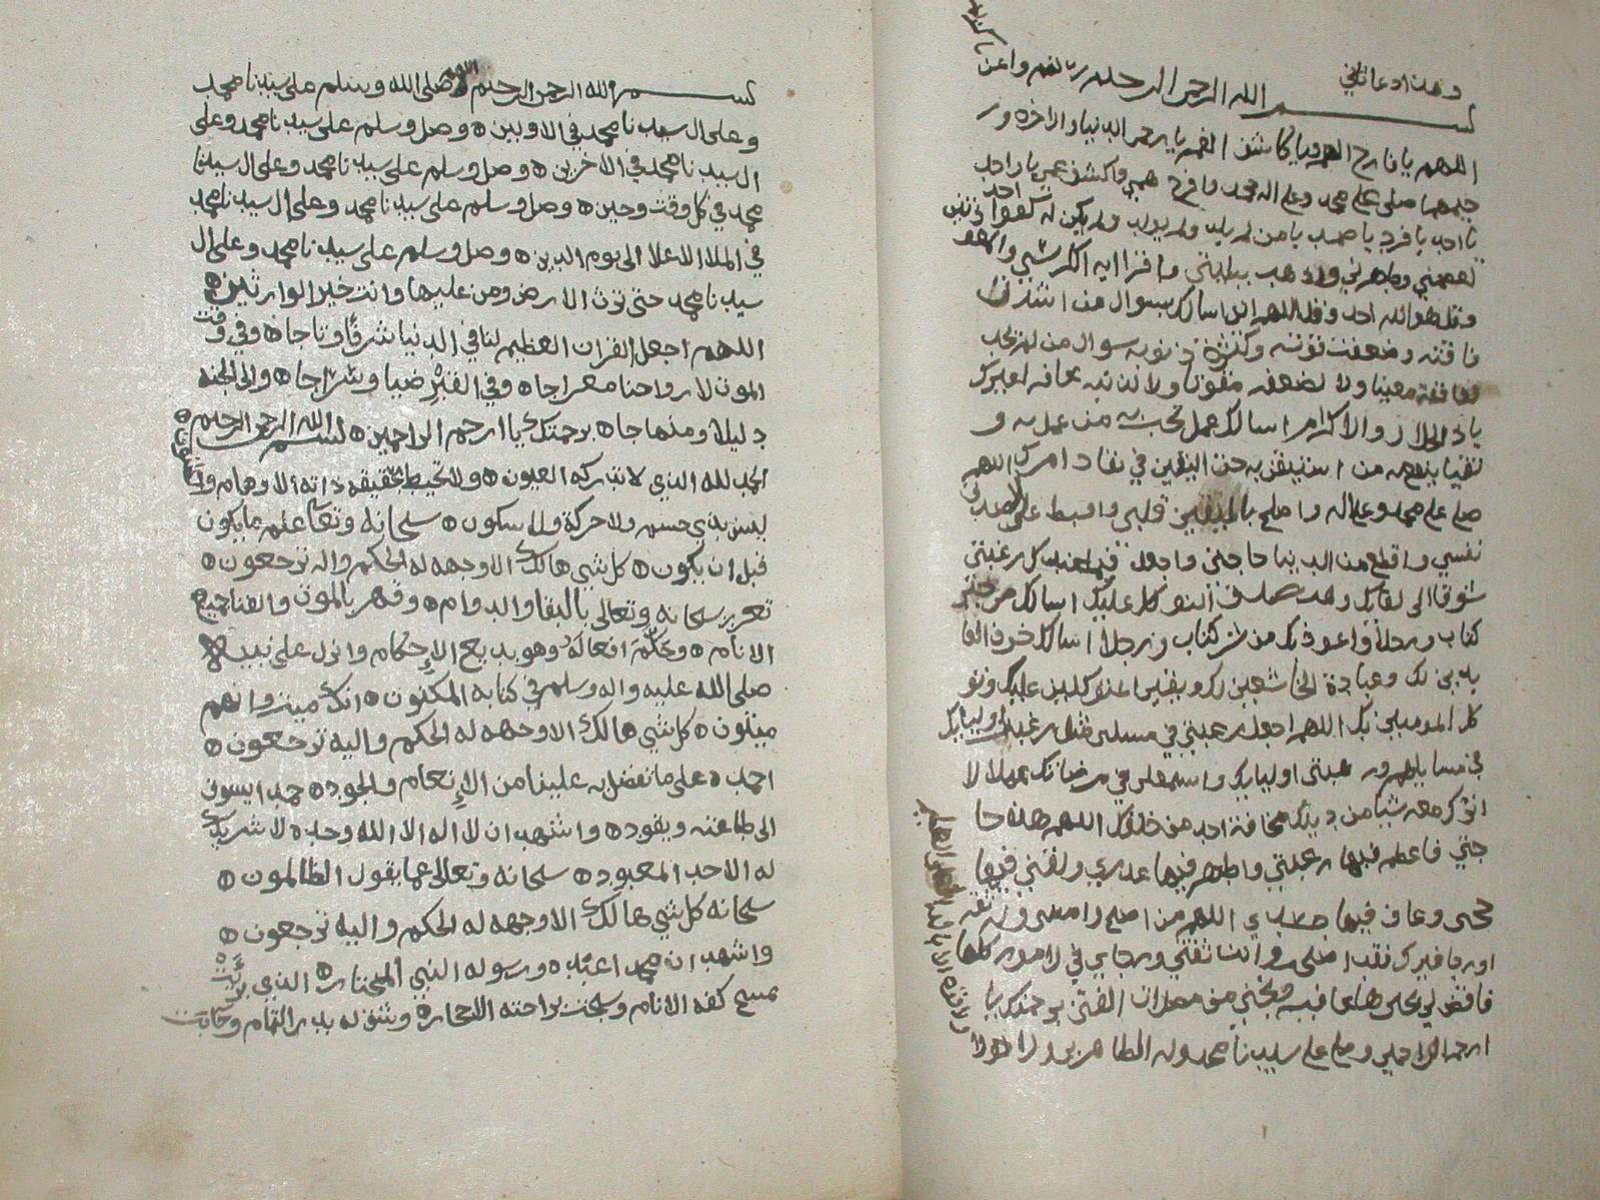 وهذا دعا
بسم الله الرحمن الرحيم رب تمم واعن يا كريم
اللهم يا فارج الهم ويا كاشف الغم يا رحمن الدنيا والاخره و
رحيمهما صلي على محمد وعلى اله محمد وافرج همي واكشف غمي يا واحد
يا احد يا فرد يا صمد يا من لم يلد ولم يولد ولم يكن له كفوا احد
اعصمني وطهرني واذهب ببليتي واقرا ايه الكرسي والمعو
وقل هو الله احد وقل اللهم اني اسالك سوال من اشتدت
فاقته وضعفت قوته وكثرة ذنوبه سوال من لم يجد
لفاقته مغيثا ولا لضعفه مقويا ولا لذنبه غافر غيرك
ياذ الجلال والاكرام اسالك عمل تحب به من عمل به و
يقينا ينفع من استيقن به حق اليقين في نفاذ امرك اللهم
صل على محمد وعلى اله واصلح باليقين قلبي واقبط على الصدق
نفسي واقطع من الدنيا حاجتي واجعل فيما عندك رغبتي
شوقا الى لقايك وهب صدق التوكل عليك اسالك من خير
كتاب وخلا واعوذ بك من شر كتاب وخلا اسالك خوف العا
بدين لك وعبادة الخاشعين لك ويقين المتوكلين عليك وتو
كل المومنين بك اللهم اجعل رغبتي في مسلتي مثل رغبة اوليايك
في مسايلهم ورهبتي اوليايك واستعملني في مرضاتك عملا لا
اترك معه شيا من دينك مخافة احد من خلقك اللهم هذه حا
جتي فاعظم فيها رغبتي واظهر فيها عذري ولقني فيها
حجتي وعاف فيها جسدي اللهم من اصبح وامسى وله ثقه
اورجا غيرك فقد اصبحت وانت ثقتي ورجاي في الامور كلها
فاقض لي بخيرها عاقبه ونجني من مضلات الفتن برحمتك يا
ارحم الراحمين وصلى على سيدنا محمد وله الطاهرين ولا حول
ولا قوة الا بالله العلي العظيم
بسم الله الرحمن الرحيم اللهم صلى الله وسلم على سيدنا محمد
وعلى ال سيدنا محمد في الاوبين ه وصل وسلم على سيدنا محمد وعلى
ال سيدنا محمد في الاخرين ه وصل وسلم على سيدنا محمد وعلى ال سيدنا
محمد في كل وقت وحين ه وصل وسلم على سيدنا محمد وعلى ال سيدنا محمد
في الملا الاعلا الى يوم الدين ه وصل وسلم على سيدنا محمد وعلى ال
سيدنا محمد حتى ترث الارض ومن عليها وانت خير الوارثين ه
اللهم اجعل القران العظيم لنا في الدنيا شرقا وتاجا ه وفي وقت
الموت لارواحنا معراجا ه وفي القبر ضيا وسراجا ه والى الجنه
دليلا ومنهاجا ه برحمتك يا ارحم الراحمين ه بسم الله الرحمن الرحيم ه
الحمد لله الذي لا تدركه العيون ه ولا تحيط بحقيقه ذاته الاوهام و
ليس بذي جسم ولا حركة ولا سكون ه سبحانه وتعا علم ما يكون
قبل ان يكون ه كل شي هالك الا وجهه له الحكم واله ترجعون ه
تعزز سبحانه وتعالى بالبقا والدوام ه وقهر بالموت والفنا جميع
الانام ه وحكم افعاله وهو بديع الاحكام وانزل على نبيه
صلى الله عليه واله وسلم في كتابه المكنون ه انك ميت وانهم
ميتون ه كل شي هالك الا وجهه له الحكم واليه ترجعون ه
احمده على ما تفضل به علينا من الانعام والجود ه حمدا يسوق
الى طاعته ويقود ه واشهد ان لا اله الا الله وحده لا شريك
له الاحد المعبود ه سبحانه وتعالى عما يقول الظالمون ه
سبحانه كل شي هالك الا وجهه له الحكم واليه ترجعون ه
واشهد ان محمد اعبده ورسوله النبي المختار ه الذي
كفه الانام وسبحت براحته الاحجار ه وشق له بدر التمام